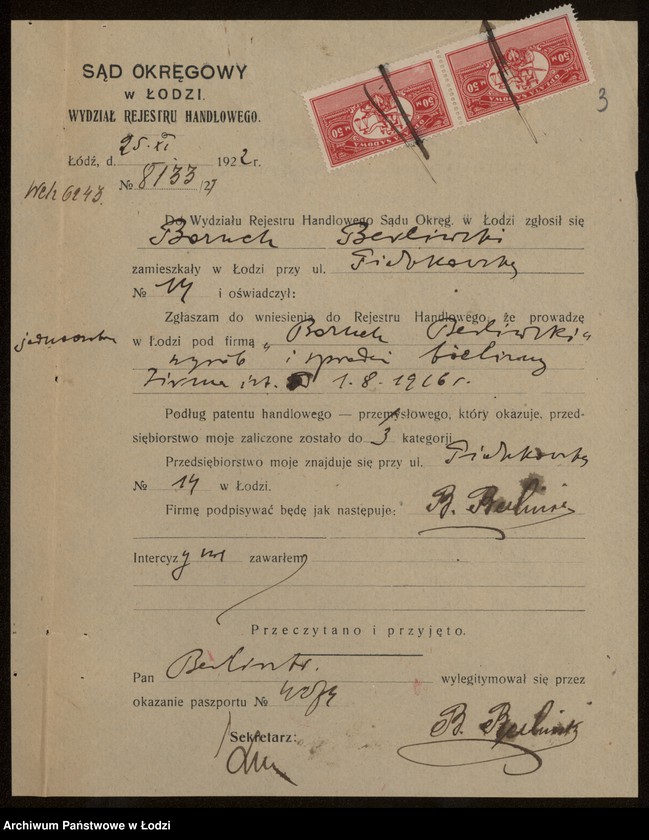 SĄD OKRĘGOWY
w ŁODZI.
WYDZIAŁ REJESTRU HANDLOWEGO.
3
Łódź, d. 25. XI 1922 r.
№ 8133/27
Do Wydziału Rejestru Handlowego Sądu Okręg. w Łodzi zgłosił się
Boruch Berliwski
zamieszkały w Łodzi przy ul.
№ 14 i oświadczył:
Zgłaszam do wniesienia do Rejestru Handlowego, że prowadzę
w Łodzi pod firmą „Boruch Berliwski"
wyrób i sprzedaż bielizny
Firma istn. 1.8.1916 r.
Podług patentu handlowego — przemysłowego, który okazuje, przed-
siębiorstwo moje zaliczone zostało do 3 kategorji
Przedsiębiorstwo moje znajduje się przy ul.
№ 14 w Łodzi.
Firmę podpisywać będę jak następuje: B.
Intercyzy nie zawarłem
Przeczytano i przyjęto.
Pan wylegitymował się przez
okazanie paszportu №
B.
Sekretarz:
50 M
50 M
50 M
50 M
OPŁATA SKARBOWA
Archiwum Państwowe w Łodzi